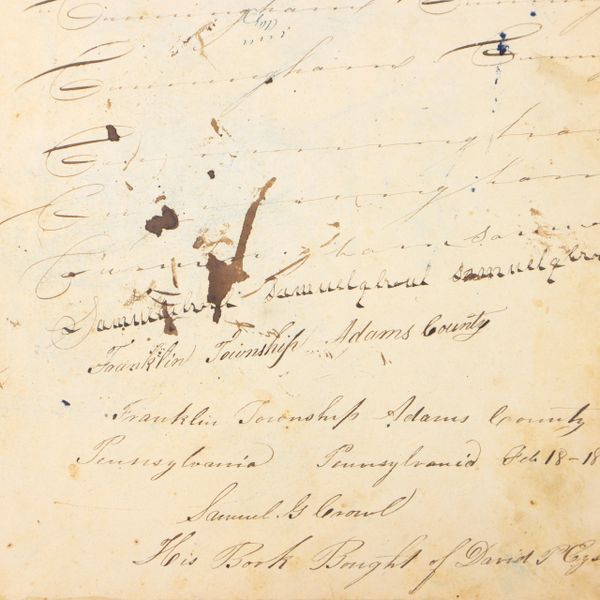 Cunninghams
Cunninghams
Cunningham
Cunningham
Cunningham
Samuel g Croul Samuel g Croul Samuel g
Franklin Township Adams County
Franklin Township Adams County
Pennsylvania Pennsylvania Feb 18-18
Samuel G Croul
His Book Bought of David P